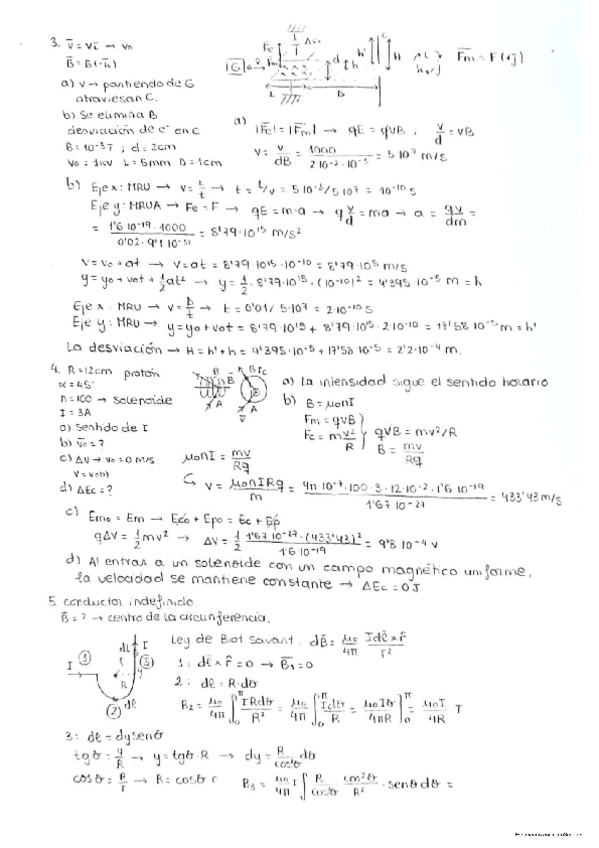 3. v̄ = vī → v₀
B̄ = B(-k̄)
a) v → partiendo de G
atraviesan C.
b) Se elimina B
desviación de e⁻ en C
B = 10⁻³ T ; d = 2cm
V₀ = 1kV L = 5mm D = 1cm
F̄m = F(+j)
a) |F̄e| = |F̄m| → qE = qVB ; V/d = vB
v = V/dB = 1000/(2·10⁻²·10⁻³) = 5·10⁷ m/s
b) Eje x: MRU → v = L/t → t = L/v = 5·10⁻³/5·10⁷ = 10⁻¹⁰ s
Eje y: MRUA → Fe = F → qE = m·a → q V/d = ma → a = qv/dm =
= 1'6·10⁻¹⁹·1000/(0'02·9'1·10⁻³¹) = 8'79·10¹⁵ m/s²
v = v₀ + at → v = at = 8'79·10¹⁵·10⁻¹⁰ = 8'79·10⁵ m/s
y = y₀ + v₀t + ½at² → y = ½·8'79·10¹⁵·(10⁻¹⁰)² = 4'395·10⁻⁵ m = h
Eje x: MRU → v = D/t → t = 0'01/5·10⁷ = 2·10⁻¹⁰ s
Eje y: MRU → y = y₀ + v₀t = 8'79·10¹⁵ + 8'79·10⁵·2·10⁻¹⁰ = 17'58·10⁻⁵ m = h'
La desviación → H = h' + h = 4'395·10⁻⁵ + 17'58·10⁻⁵ = 2'2·10⁻⁴ m.
4. R = 12cm protón
α = 45°
n = 100 → solenoide
I = 3A
a) sentido de I
b) v̄₀ = ?
c) ΔV → v₀ = 0 m/s
v = v(b)
d) ΔEc = ?
a) La intensidad sigue el sentido horario
b) B = μ₀nI
Fm = qVB
Fc = m v²/R
qVB = mv²/R
B = mv/Rq
μ₀nI = mv/Rq
v = μ₀nIRq/m = 4π·10⁻⁷·100·3·12·10⁻²·1'6·10⁻¹⁹/1'67·10⁻²⁷ = 433'43 m/s
c) Em₀ = Em → Ec₀ + Ep₀ = Ec + Ep
qΔV = ½mv² → ΔV = ½ 1'67·10⁻²⁷·(433'43)²/1'6·10⁻¹⁹ = 9'8·10⁻⁴ v
d) Al entrar a un solenoide con un campo magnético uniforme,
la velocidad se mantiene constante → ΔEc = 0J
5. conductor indefinido
B̄ = ? → centro de la circunferencia.
Ley de Biot Savart. dB̄ = μ₀/4π Idl̄×r̂/r²
1: dl̄×r̂ = 0 → B̄₁ = 0
2: dl = R·dθ
B₂ = μ₀/4π ∫₀^π IRdθ/R² = μ₀/4π ∫₀^π Idθ/R = μ₀Iθ/4πR]₀^π = μ₀I/4R T
3: dl = dy senθ
tgθ = y/R → y = tgθ·R → dy = R/cos²θ dθ
cosθ = R/r → R = cosθ r B₃ = μ₀/4π I ∫ R/cos²θ · cos²θ/R² · senθ dθ =